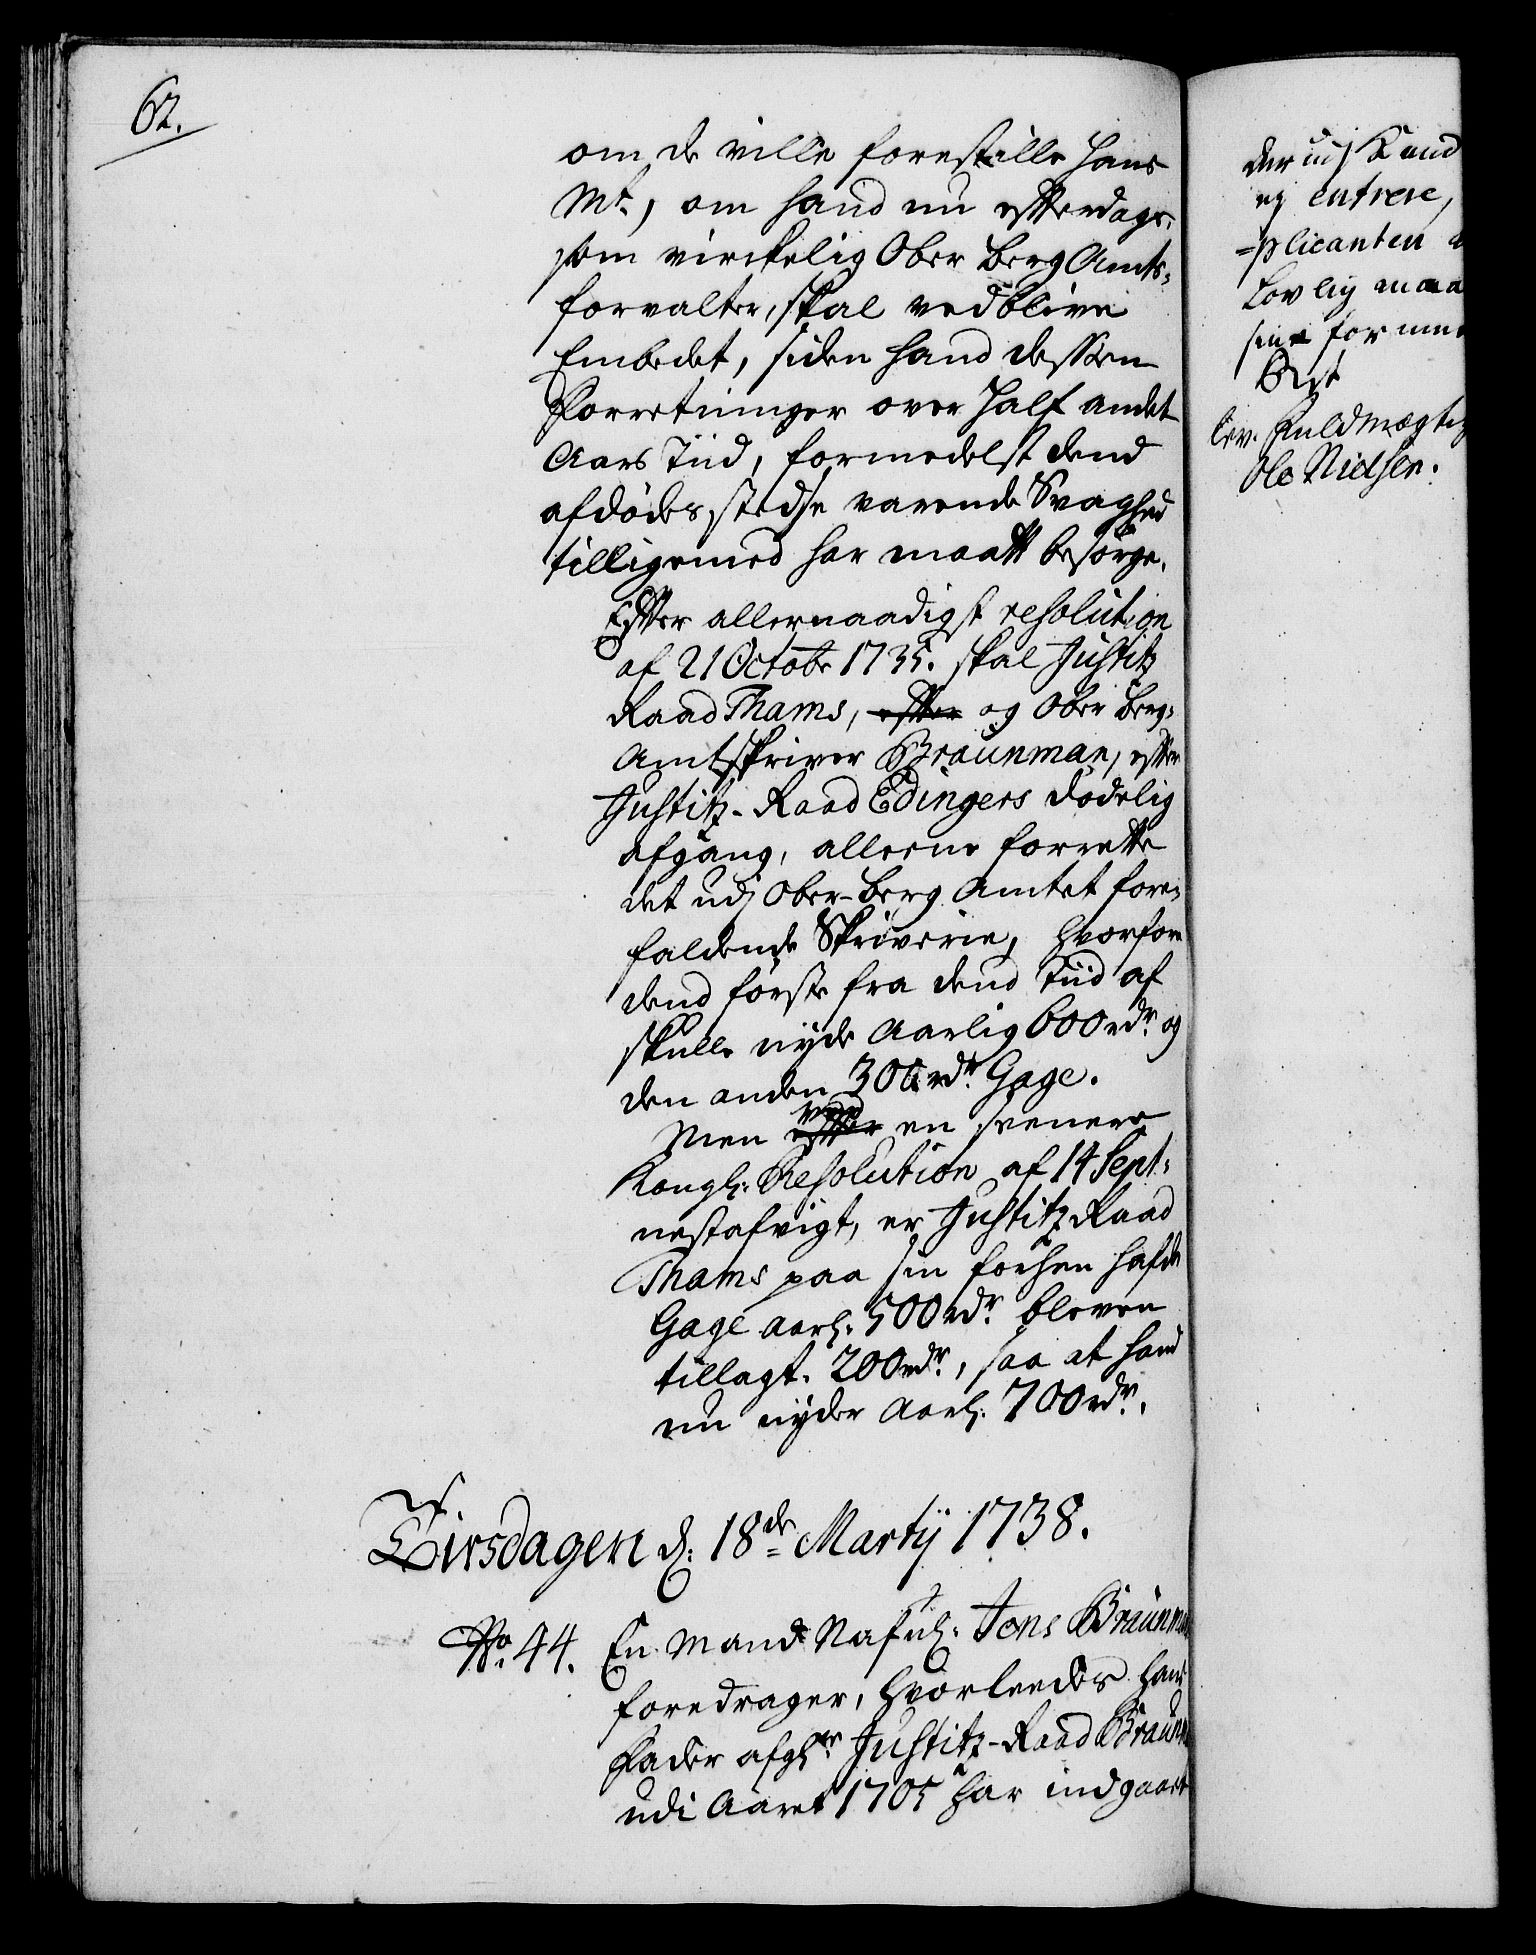 62.
om de ville forestille Hans
Mt, om hand nu efterdags,
som virckelig Ober Berg Amts-
forvalter, skal vedblive
Embedet, siden hand dessen
Forretninger over Half andet
Aars Tiid, formedelst dend
afdødes stedse varende Svaghed
tilligemed har maatt besørge.
Efter allernaadigst resolution
af 21 Octobr 1735. skal Justitz
Raad Thams, efter og Ober Berg-
Amtskriver Braunman, efter
Justitz-Raad Edingers dødelig
afgang, alleene forrette
det udj Ober-Berg Amtet fore-
faldende Skriverie, hvorfore
dend første fra dend Tiid af
skulle nyde Aarlig 600 rdr. og
den anden 300 rdr. Gage.
Men efter ved en seenere
Kongl: Resolution af 14 Sept:
nestafvigt, er Justitz Raad
Thams paa sin forhen hafde
Gage aarl: 500 rdr. bleven
tillagt. 200 rdr., saa at hand
nu nyder Aarl: 700 rdr.
Tirsdagen d: 18de Martij 1738.
No. 44. En Mand Nafnl: Jens Braunm
foredrager, hvorleedes hans
Fader afgl:r Justitz-Raad Braunm
udi Aaret 1705 har indgaaet
der udj Kund
ej entrere,
=plicanten
Lovlig maa
sine formee
Best
lev. Fuldmægtig
Ole Nielsen.